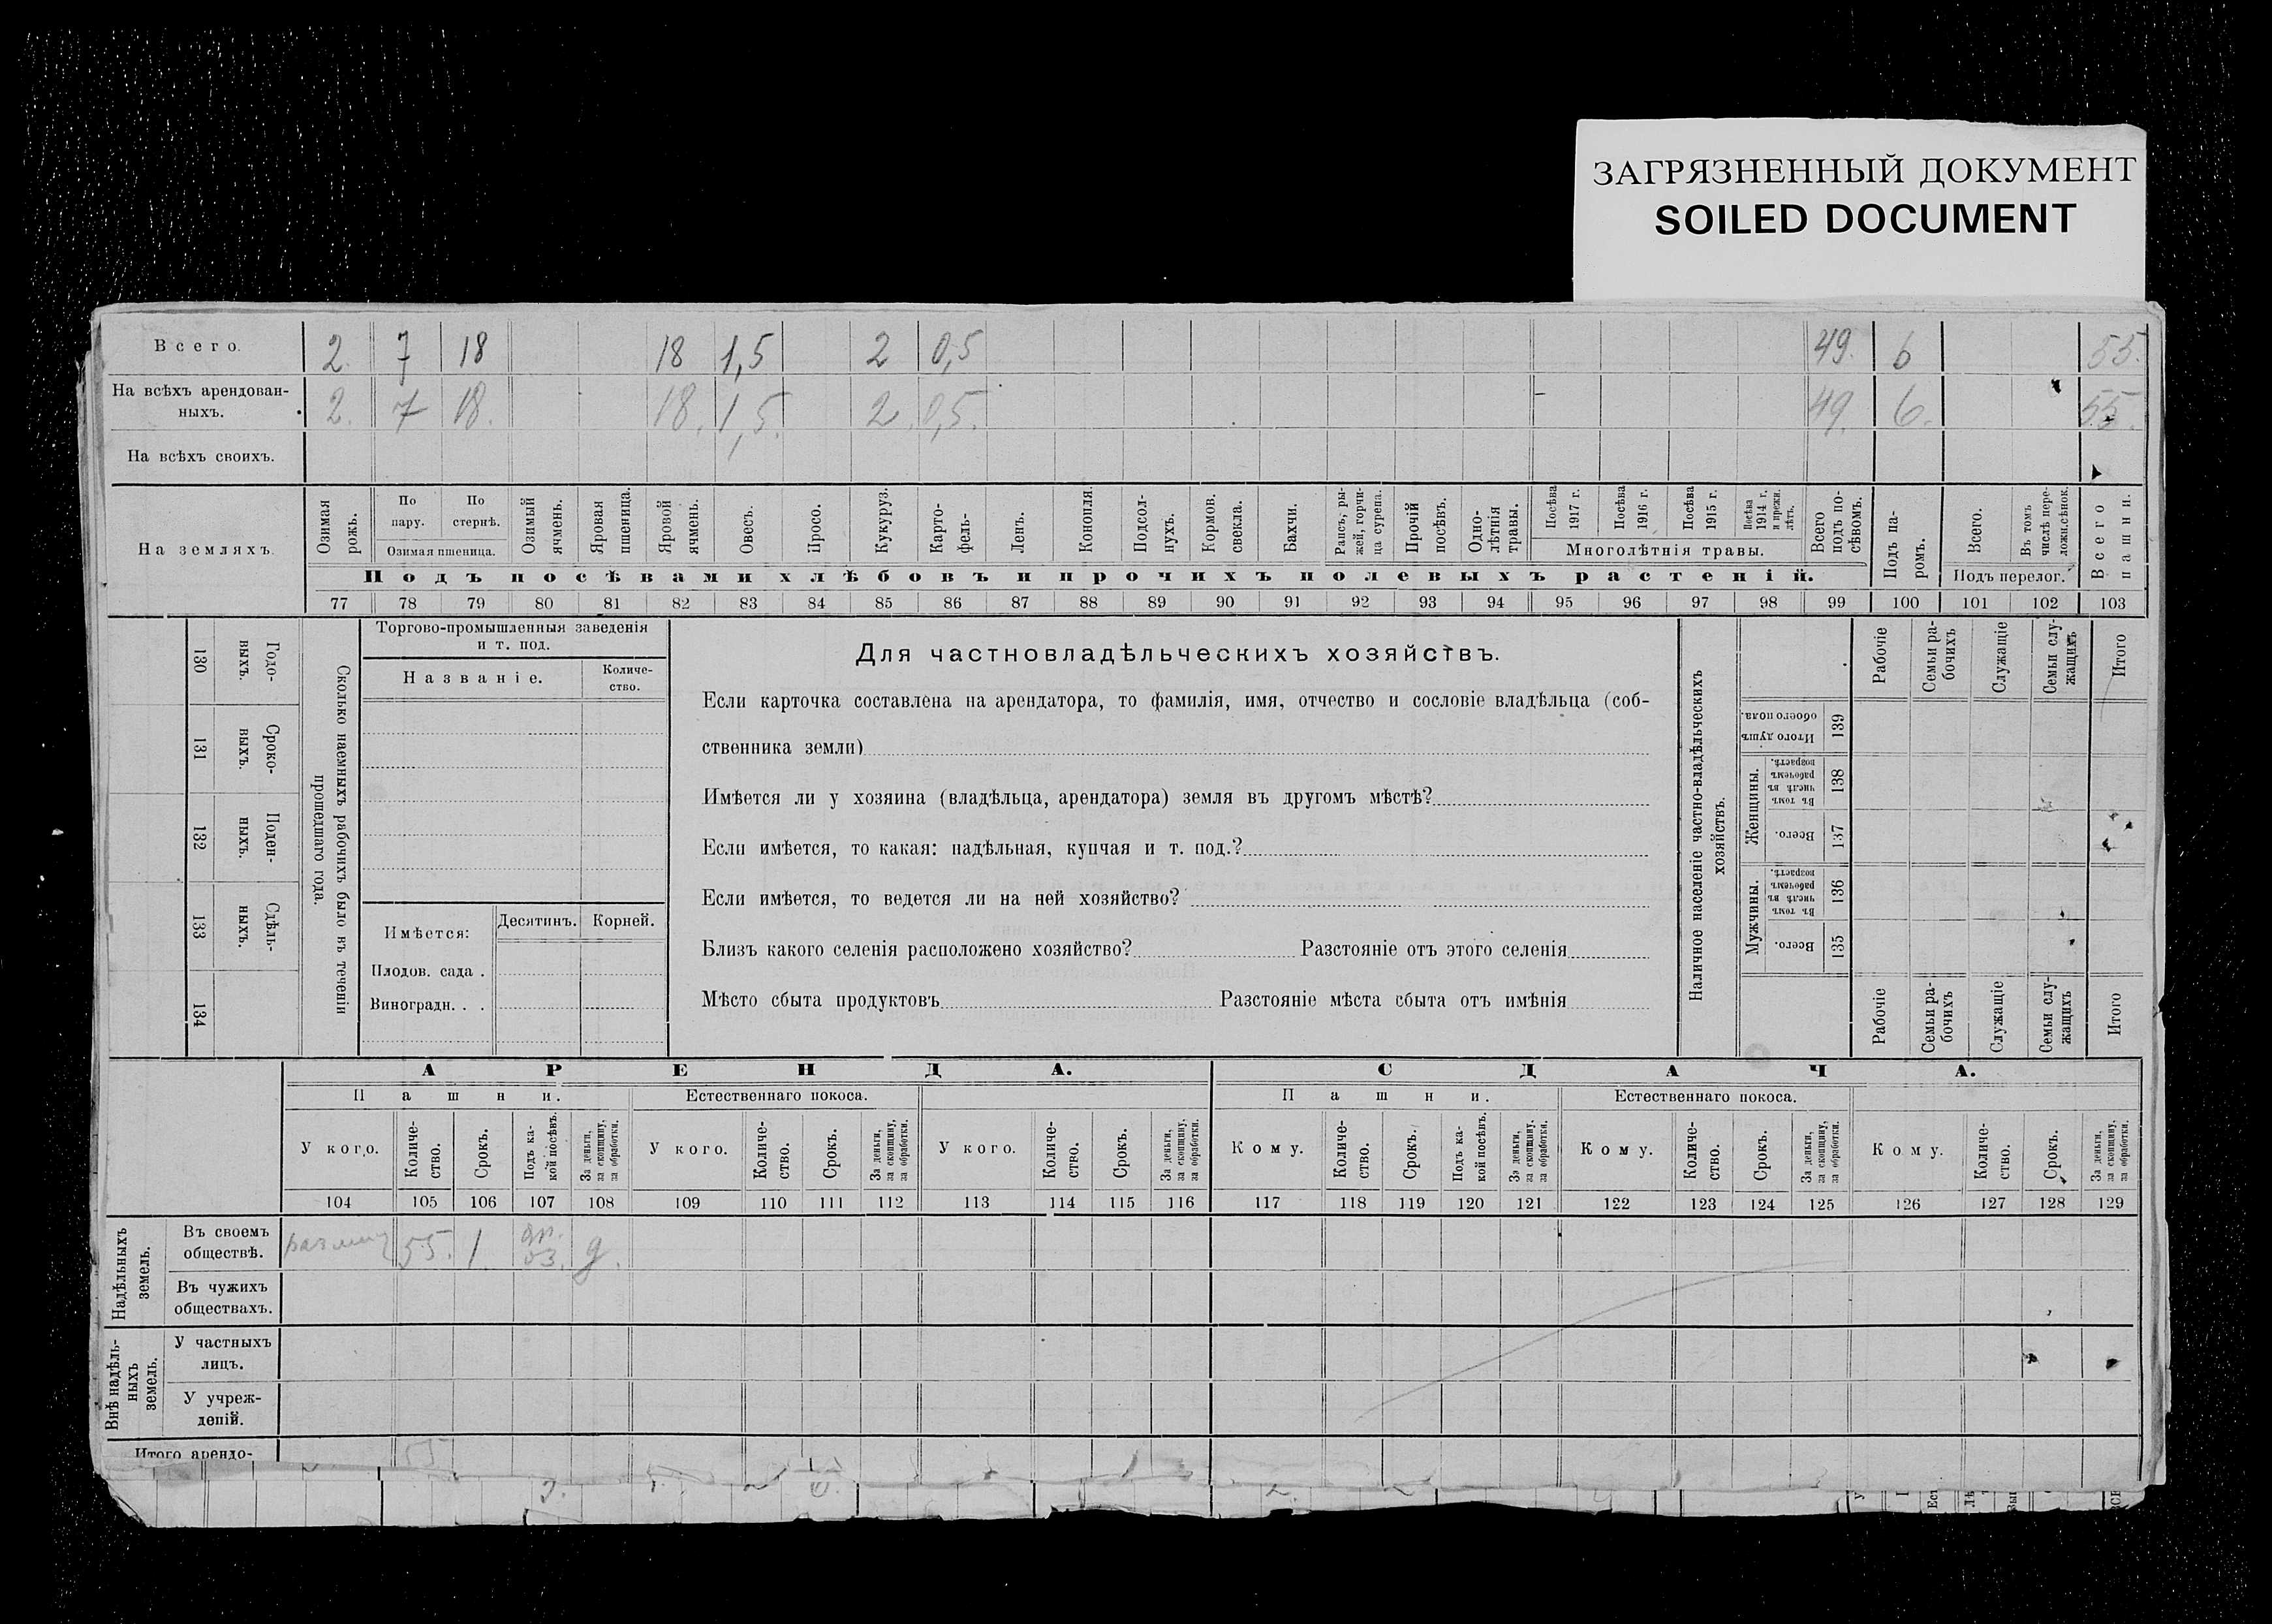 ЗАГРЯЗНЕННЫЙ ДОКУМЕНТ
SOILED DOCUMENT
Всего. 2. 7 18 18 1,5 2 0,5 49. 6 55.
На всѣхъ арендован-
ныхъ. 2. 7 18. 18. 1,5. 2. 0,5. 49. 6. 55.
На всѣхъ своихъ.
На земляхъ.
Озимая рожь.
По пару.
По стернѣ.
Озимая пшеница.
Озимый ячмень.
Яровая пшеница.
Яровой ячмень.
Овесъ.
Просо.
Кукуруз.
Карто-
фель-
Ленъ.
Конопля.
Подсол-
нухъ.
Кормов.
свекла.
Бахчи.
Рапсъ, ры-
жей, горчи-
ца сурепа.
Прочій
посѣвъ.
Одно-
лѣтнія
травы.
Посѣва
1917 г.
Посѣва
1916 г.
Посѣва
1915 г.
Посѣва
1914 г.
и прежн.
лѣтъ.
Многолѣтнія травы.
Всего
подъ по-
сѣвомъ.
Подъ па-
ромъ.
Всего.
Въ томъ
числѣ пере-
ложн.сѣнок.
Подъ перелог.
Всего
пашни.
Подъ посѣвами хлѣбовъ и прочихъ полевыхъ растеній.
77 78 79 80 81 82 83 84 85 86 87 88 89 90 91 92 93 94 95 96 97 98 99 100 101 102 103
130 Годо-
ныхъ.
131 Сроко-
ныхъ.
132 Поден-
ныхъ.
133 Сдѣль-
ныхъ.
134
Сколько наемныхъ рабочихъ было въ теченіи
прошедшаго года.
Торгово-промышленныя заведенія
и т. под.
Названіе.
Количе-
ство.
Имѣется:
Десятинъ.
Корней.
Плодов. сада .
Виноградн. . .
Для частновладѣльческихъ хозяйствъ.
Если карточка составлена на арендатора, то фамилія, имя, отчество и сословіе владѣльца (соб-
ственника земли)
Имѣется ли у хозяина (владѣльца, арендатора) земля въ другомъ мѣстѣ?
Если имѣется, то какая: надѣльная, купчая и т. под.?
Если имѣется, то ведется ли на ней хозяйство?
Близъ какого селенія расположено хозяйство? Разстояніе отъ этого селенія
Мѣсто сбыта продуктовъ Разстояніе мѣста сбыта отъ имѣнія
Наличное населеніе частно-владѣльческихъ
хозяйствъ.
Рабочіе
Семьи ра-
бочихъ
Служащіе
Семьи слу-
жащихъ
Итого
Итого душъ
обоего пола.
139
Женщины.
Въ томъ
числѣ въ
рабочемъ
возрастѣ.
138
Всего.
137
Мужчины.
Въ томъ
числѣ въ
рабочемъ
возрастѣ.
136
Всего.
135
Рабочіе
Семьи ра-
бочихъ
Служащіе
Семьи слу-
жащихъ
Итого
АРЕНДА. СДАЧА.
Пашни. Естественнаго покоса. Пашни. Естественнаго покоса.
У кого.
Количе-
ство.
Срокъ.
Подъ ка-
кой посѣвъ.
За деньги,
за скопщину,
за обработки.
У кого.
Количе-
ство.
Срокъ.
За деньги,
за скопщину,
за обработки.
У кого.
Количе-
ство.
Срокъ.
За деньги,
за скопщину,
за обработки.
Кому.
Количе-
ство.
Срокъ.
Подъ ка-
кой посѣвъ.
За деньги,
за скопщину,
за обработки.
Кому.
Количе-
ство.
Срокъ.
За деньги,
за скопщину,
за обработки.
Кому.
Количе-
ство.
Срокъ.
За деньги,
за скопщину,
за обработки.
104 105 106 107 108 109 110 111 112 113 114 115 116 117 118 119 120 121 122 123 124 125 126 127 128 129
Надѣльныхъ
земель.
Въ своемъ
обществѣ. 55. 1 оз. д.
Въ чужихъ
обществахъ.
Внѣ надѣль-
ныхъ
земель.
У частныхъ
лицъ.
У учреж-
деній.
Итого арендо- 55